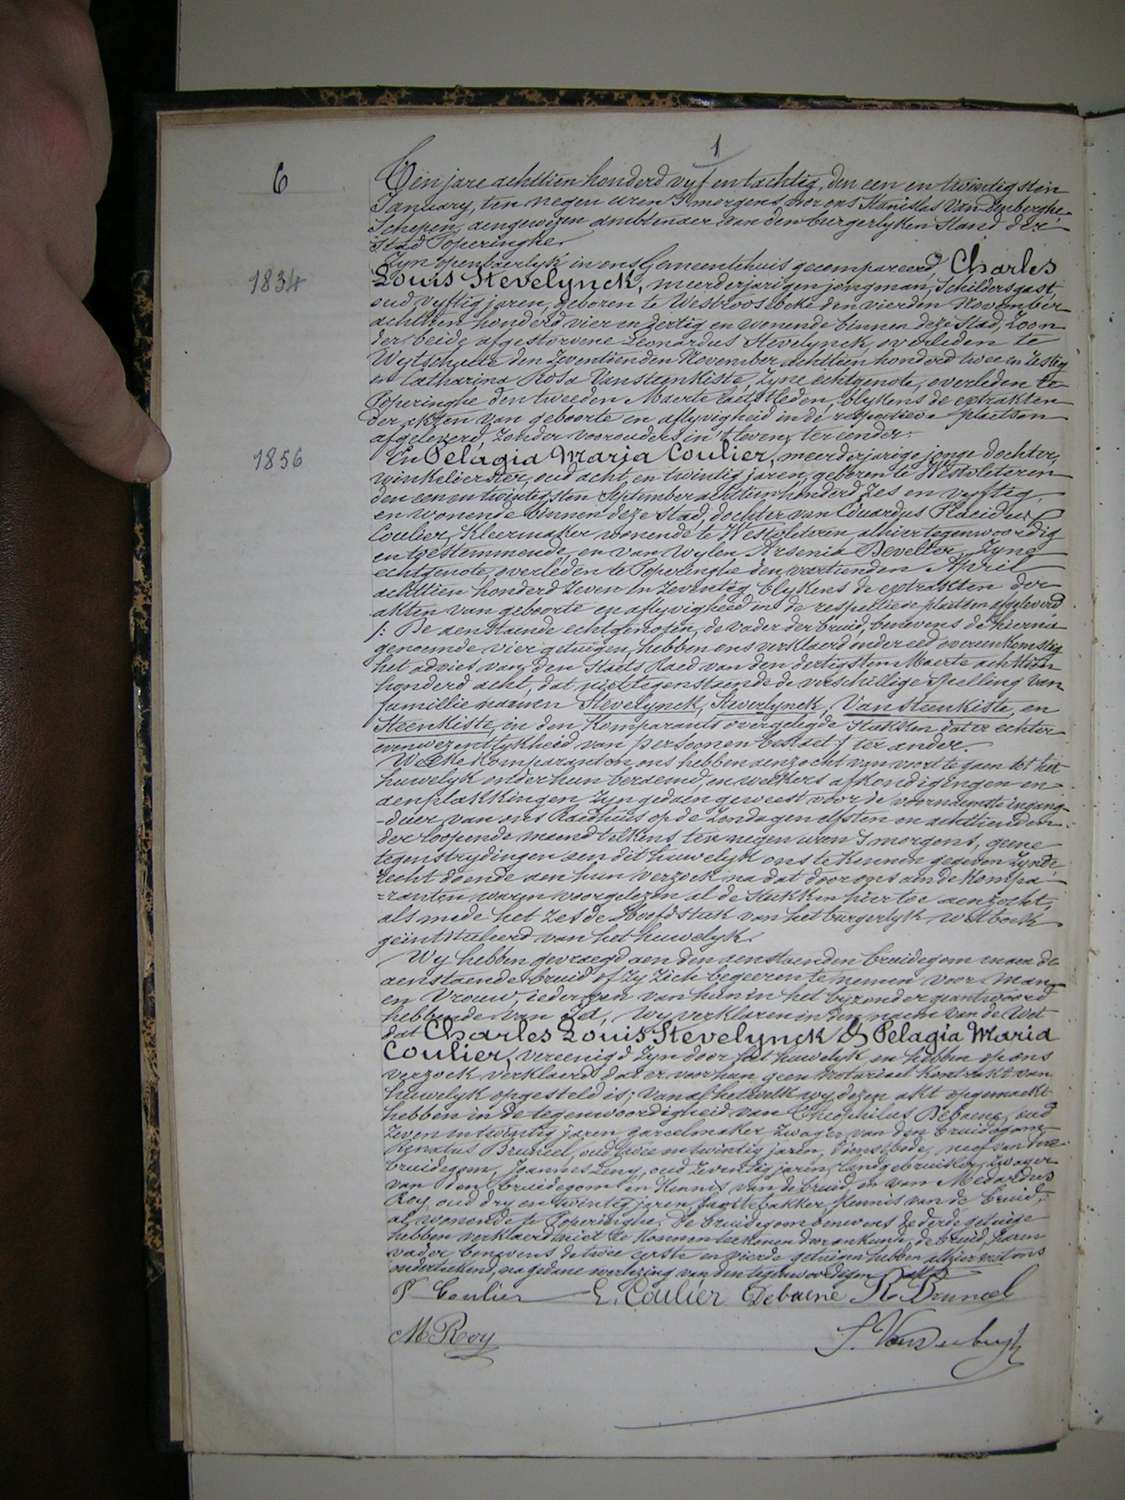 1
6
Ten jare achttien honderd vyf en tachtig, den een en twintigsten
January, ten negen uren 's morgens voor ons Stanislas Van Denberghe
Schepen, aengewezen ambtenaer van den burgerlyken Stand der
Stad Poperinghe.
Zyn openbaerlyk in ons Gemeentehuis gecompareerd, Charles
1834
Louis Stevelynck, meerderjarigen jongman, Schildersgast,
oud vyftig jaren, geboren te Westroosbeke den vierden November
achttien honderd vier en dertig en wonende binnen deze Stad, Zoon
der beide afgestorvene Leonardus Stevelynck overleden te
Wytschaete den Zeventienden November achttien honderd twee en Zestig
en Catharina Rosa Vansteenkiste, Zyne echtgenote, overleden te
Poperinghe den tweeden Maerte laetstleden, blykens de extrakten
der akten van geboorte en aflyvigheid in de respectieve plaetsen
afgeleverd, Zonder voorouders in 't leven, ter eender.
1856
En Pelagia Maria Coulier, meerderjarige jonge dochter,
winkelierster, oud acht en twintig jaren, geboren te Westvleteren
den een en twintigsten September achttien honderd Zes en vyftig,
en wonende binnen deze stad, dochter van Eduardus Placidus
Coulier, Kleermaker wonende te Westvleteren alhier tegenwoordig
en toestemmende, en van wylen Arsenia Develter, Zyne
echtgenote, overleden te Poperinghe den veertienden April
achttien honderd Zeven en Zeventig, blykens de extrakten der
akten van geboorte en aflyvigheid in de respectieve plaetsen afgeleverd
/: De aenstaende echtgenoten, de vader der bruid, benevens de hierna
genoemde vier getuigen, hebben ons verklaerd onder eed overeenkomstig
het advies van den Staets Raed van den dertigsten Maerte achttien
honderd acht, dat niettegenstaende de verschillige spelling van
famillie namen Stevelynck, Steverlynck, Vansteenkiste, en
Steenkiste, in den Komparants overgelegde Stukken dat er echter
eenwezentlykheid van persoonen bestaet / ter ander.
Welke Komparanten ons hebben aenzocht van voort te gaen tot het
huwelyk onder hun beraemd, en welkers afkondigingen en
aenplakkingen Zyn gedaen geweest voor de voornaemste ingang-
-deur van ons Raedhuis op de Zondagen elfsten en achttienden
der loopende maend telkens ten negen uren 's morgens, geene
tegenstrydingen aen dit huwelyk ons te kennen gegeven Zynde
recht doende aen hun verzoek na dat door ons aen de Kompa-
-ranten waren voorgelezen al de Stukken hier toe aenzocht,
als mede het Zesde Hoofdstuk van het burgerlyk wetboek
geïntituleerd van het huwelyk.
Wy hebben gevraegd aen den aenstaenden bruidegom en aen de
aenstaende bruid of Zy Zich begeeren te nemen voor Man
en Vrouw, ieder een van hun in het byzonder geantwoord
hebbende van Ja, Wy verklaren in den naem van de Wet
dat Charles Louis Stevelynck & Pelagia Maria
Coulier, vereenigd Zyn door het huwelyk en hebben op ons
verzoek verklaerd dat er voor hun geen Notariael Kontrakt van
huwelyk opgesteld is; van al hetwelk wy dezen akt opgemaekt
hebben in de tegenwoordigheid van Theophilus Debaene, oud
Zeven en twintig jaren gareelmaker Zwager van den bruidegom
Renatus Bruneel, oud twee en twintig jaren, dienstbode, neef van den
bruidegom, Joannes Leng, oud Zeventig jaren, Landgebruiker, Zwager
van den bruidegom en Kennis van de bruid, en van Medardus
Roy, oud dry en twintig jaren, bakker, Kennis van de bruid,
al wonende te Poperinghe. De bruidegom benevens de derde getuige
hebben verklaerd niet te Konnen teekenen door onkunde, de bruid, haren
vader benevens de twee eerste en vierde getuigen hebben alhier met ons
onderteekend, na gedane voorlezing van den tegenwoordigen akt
P Coulier E. Coulier Debaene R Bruneel
M Roy S. Vandenberghe